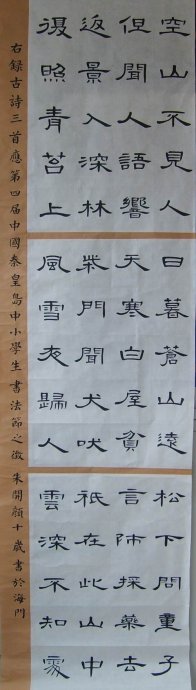 空山不見人
但聞人語響
返景入深林
復照青苔上
日暮蒼山遠
天寒白屋貧
柴門聞犬吠
風雪夜歸人
松下問童子
言師採藥去
祇在此山中
雲深不知處
右錄古詩三首應第四屆中國秦皇島中小學生書法節之徵 朱開顏十歲書於海門